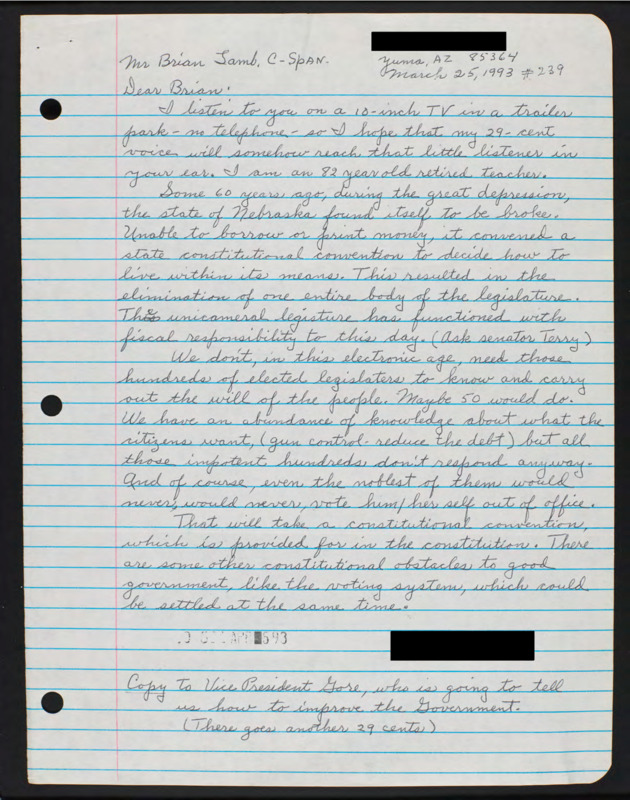 Mr Brian Lamb, C-SPAN.
Yuma, AZ 85364
March 25, 1993 #239
Dear Brian:
I listen to you on a 10-inch TV in a trailer
park - no telephone - so I hope that my 29-cent
voice will somehow reach that little listener in
your ear. I am an 82 year old retired teacher.
Some 60 years ago, during the great depression,
the state of Nebraska found itself to be broke.
Unable to borrow or print money, it convened a
state constitutional convention to decide how to
live within its means. This resulted in the
elimination of one entire body of the legislature.
This unicameral legisture has functioned with
fiscal responsibility to this day. (Ask senator Terry)
We don't, in this electronic age, need those
hundreds of elected legislaters to know and carry
out the will of the people. Maybe 50 would do.
We have an abundance of knowledge about what the
citizens want, (gun control - reduce the debt) but all
those impotent hundreds don't respond anyway.
And of course, even the noblest of them would
never, would never, vote him/her self out of office.
That will take a constitutional convention,
which is provided for in the constitution. There
are some other constitutional obstacles to good
government, like the voting system, which could
be settled at the same time.
APR 93
Copy to Vice President Gore, who is going to tell
us how to improve the Government.
(There goes another 29 cents)